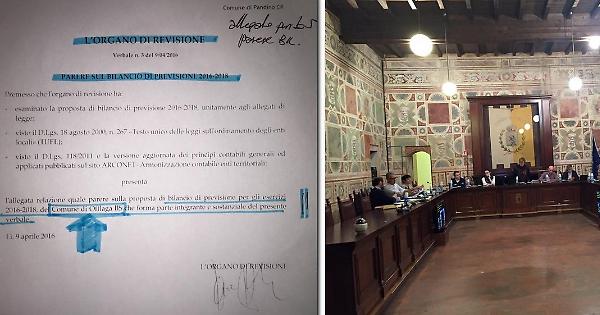 Comune di Pandino CR
allegato punto 5
parere BIL.
L'ORGANO DI REVISIONE
Verbale n. 3 del 9/04/2016
PARERE SUL BILANCIO DI PREVISIONE 2016-2018
Premesso che l'organo di revisione ha:
- esaminato la proposta di bilancio di previsione 2016-2018, unitamente agli allegati di
legge;
- visto il D.Lgs. 18 agosto 2000, n. 267 - Testo unico delle leggi sull'ordinamento degli enti
locali (TUEL);
- visto il D.Lgs. 118/2011 e la versione aggiornata dei principi contabili generali ed
applicati pubblicati sul sito ARCONET- Armonizzazione contabile enti territoriali;
presenta
l'allegata relazione quale parere sulla proposta di bilancio di previsione per gli esercizi
2016-2018, del Comune di Offlaga BS che forma parte integrante e sostanziale del presente
verbale.
Lì, 9 aprile 2016
L'ORGANO DI REVISIONE